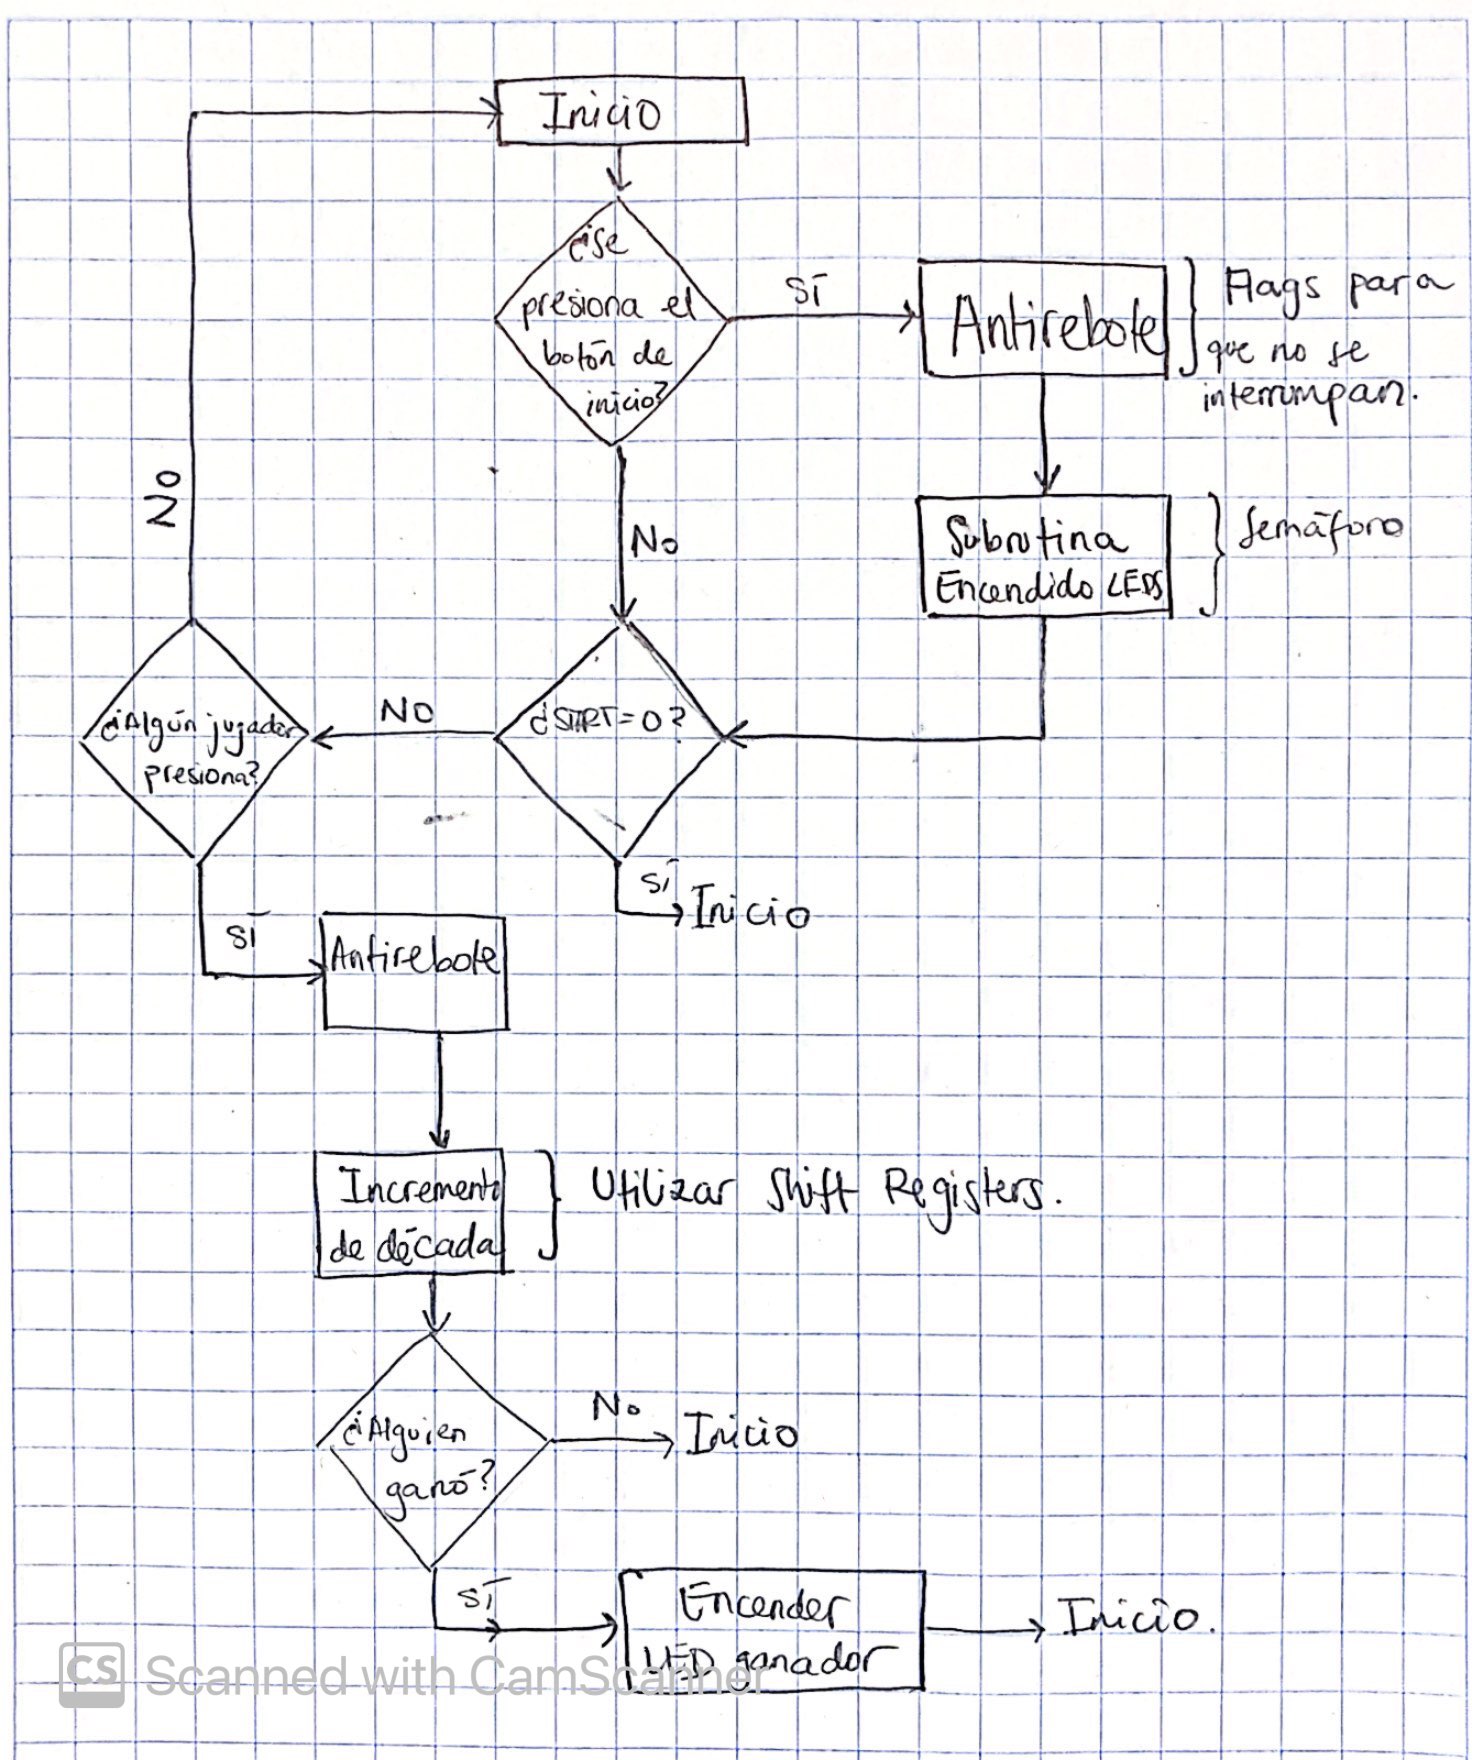 Inicio
¿Se
presiona el
botón de
inicio?
SÍ
Antirebote
Flags para
que no se
interrumpan.
No
Subrutina
Encendido LEDS
Semáforo
NO
¿START=0?
NO
¿Algún jugador
presiona?
SÍ
Inicio
SÍ
Antirebote
Incremento
de década
Utilizar Shift Registers.
¿Alguien
ganó?
No
Inicio
SÍ
Encender
LED ganador
Inicio.
CS Scanned with CamScanner